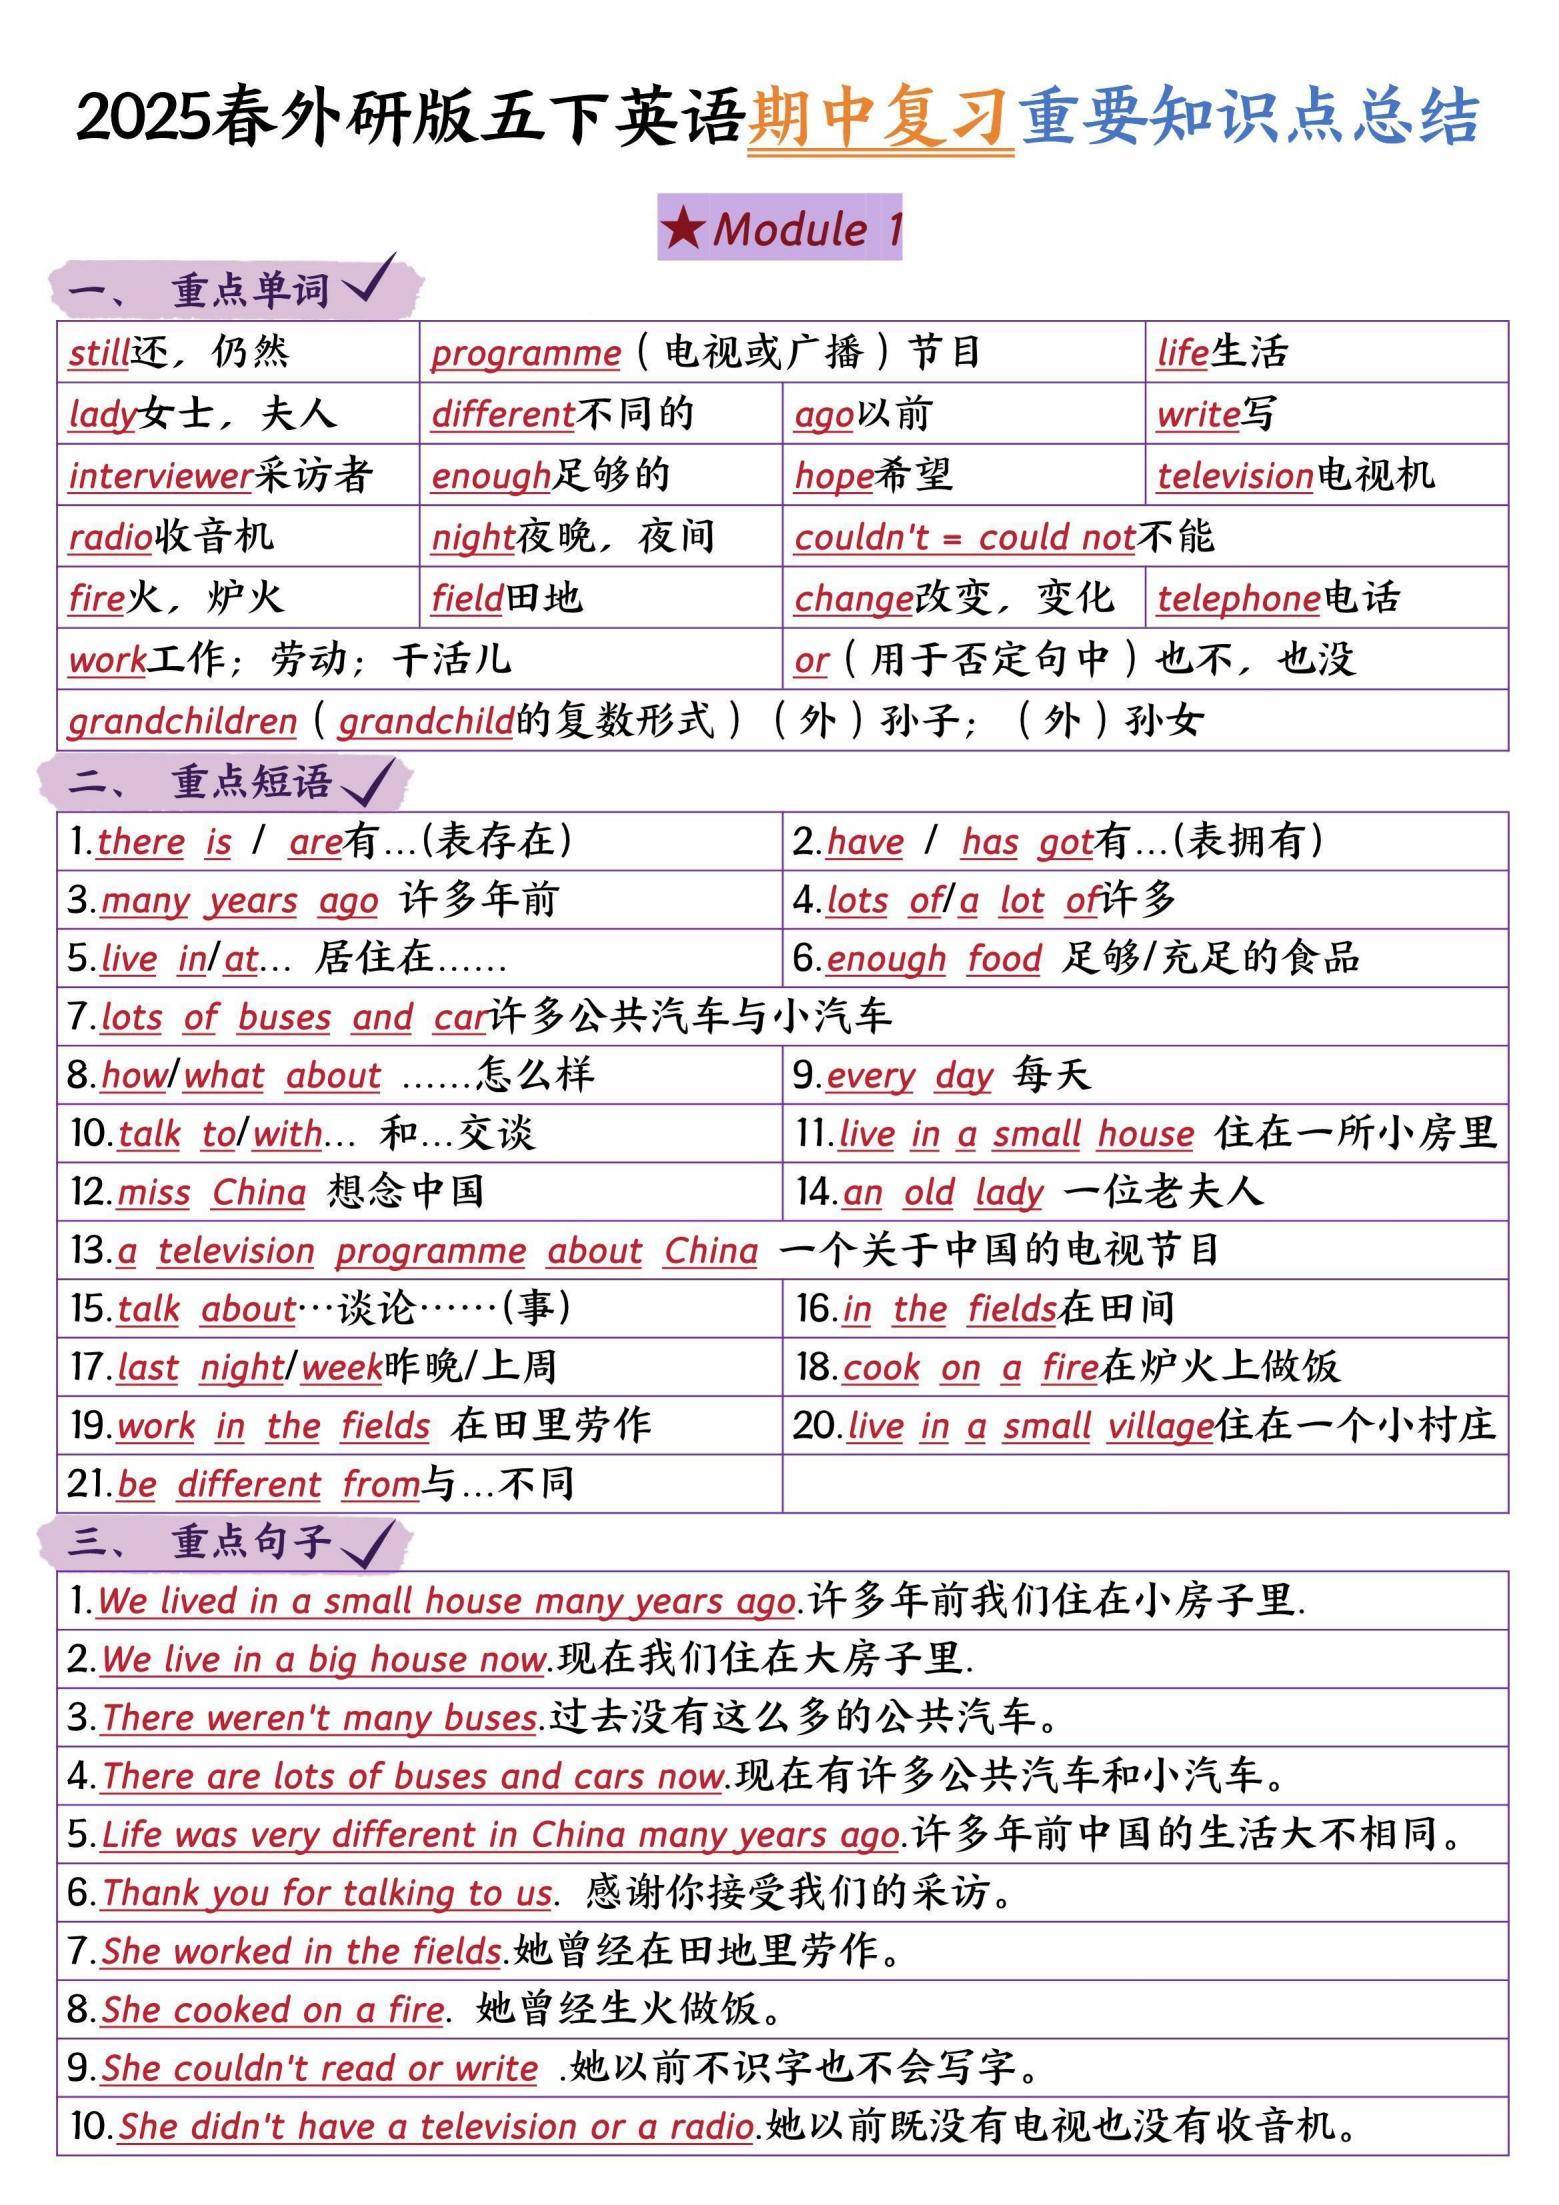 2025春外研版五下英语期中复习重要知识点总结
★Module 1
一、 重点单词
still还，仍然 programme（电视或广播）节目 life生活
lady女士，夫人 different不同的 ago以前 write写
interviewer采访者 enough足够的 hope希望 television电视机
radio收音机 night夜晚，夜间 couldn't = could not不能
fire火，炉火 field田地 change改变，变化 telephone电话
work工作；劳动；干活儿 or（用于否定句中）也不，也没
grandchildren（grandchild的复数形式）（外）孙子；（外）孙女
二、 重点短语
1.there is / are有…(表存在) 2.have / has got有…(表拥有)
3.many years ago 许多年前 4.lots of/a lot of许多
5.live in/at… 居住在…… 6.enough food 足够/充足的食品
7.lots of buses and car许多公共汽车与小汽车
8.how/what about ……怎么样 9.every day 每天
10.talk to/with… 和…交谈 11.live in a small house 住在一所小房里
12.miss China 想念中国 14.an old lady 一位老夫人
13.a television programme about China 一个关于中国的电视节目
15.talk about…谈论……(事) 16.in the fields在田间
17.last night/week昨晚/上周 18.cook on a fire在炉火上做饭
19.work in the fields 在田里劳作 20.live in a small village住在一个小村庄
21.be different from与…不同
三、 重点句子
1.We lived in a small house many years ago.许多年前我们住在小房子里.
2.We live in a big house now.现在我们住在大房子里.
3.There weren't many buses.过去没有这么多的公共汽车。
4.There are lots of buses and cars now.现在有许多公共汽车和小汽车。
5.Life was very different in China many years ago.许多年前中国的生活大不相同。
6.Thank you for talking to us. 感谢你接受我们的采访。
7.She worked in the fields.她曾经在田地里劳作。
8.She cooked on a fire. 她曾经生火做饭。
9.She couldn't read or write .她以前不识字也不会写字。
10.She didn't have a television or a radio.她以前既没有电视也没有收音机。